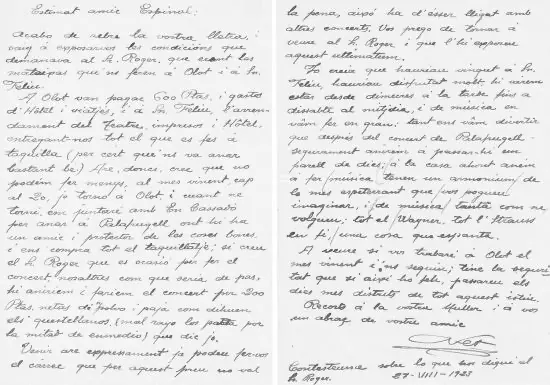 Estimat amic Espinal:
Acabo de rebre la vostra lletra, i
vaig á exposarvos les condicións que
demanava al Sr. Roger, que eran las
mateixas que'ns feren á Olot i á Sn.
Feliu.
A Olot van pagar 600 Ptas. i gastos
d'Hotel i viatjes, i á Sn. Feliu, l'arren-
dament del Teatre, impresos i Hôtel,
entregant-nos tot el que es fes á
taquilla (per cert que'ns va anar
bastant be.) Are, doncs, crec que no
podém fer menys, al mes vinent cap
al 20, jo torno á Olot, i cuant ne
torni, em juntaré amb En Cassadó
per anar á Palafrugell ont hi ha
un amic i protector de las coses bones,
i ens compra tot el taquillatje; si creu
el Sr. Roger que es ocasió per fer el
concert, nosaltres com que seria de pas,
hi aniriem i fariem el concert per 200
Ptas. netas di polvo i paja com dihuen
els questellanos, (mal rayo los parta por
la mitat de enmedio) que dic jo.
Venir are expressament ja podeu fer-vos
el carrec que per aquest preu no val
la pena, aixó ha d'ésser lligat amb
altres concerts. Vos prego de tornar á
veure al Sr. Roger i que l'hi exposeu
aquest ultimátum.
Jo creia que hauriau vingut á Sn.
Feliu, hauriau disfrutat molt, hi várem
estar desde dimecres á la tarde fins a
dissabte al mitjdia, i de música en
vám fer en gran, tant ens vám divertir
que després del concert de Palafrugell
segurament anirém á passar-hi un
parell de dies; á la casa ahont aném
á fer música tenen un armonium de
lo mes espaterrant que vos pogueu
imaginer, i de música tanta com ne
volgueu; tot el Wagner, tot l'Strauss
en fi, una cosa que espanta.
A veure si vos trobaré á Olot el
mes vinent i ens seguiu; tinc la seguri-
tat que si aixó ho feu, passareu els
dies mes distrets de tot aquest istiu.
Records á la vostra Muller i á vos
un abraç de vostre amic
Contesteume sobre lo que vos digui el
Sr. Roger. 27-VIII-1923